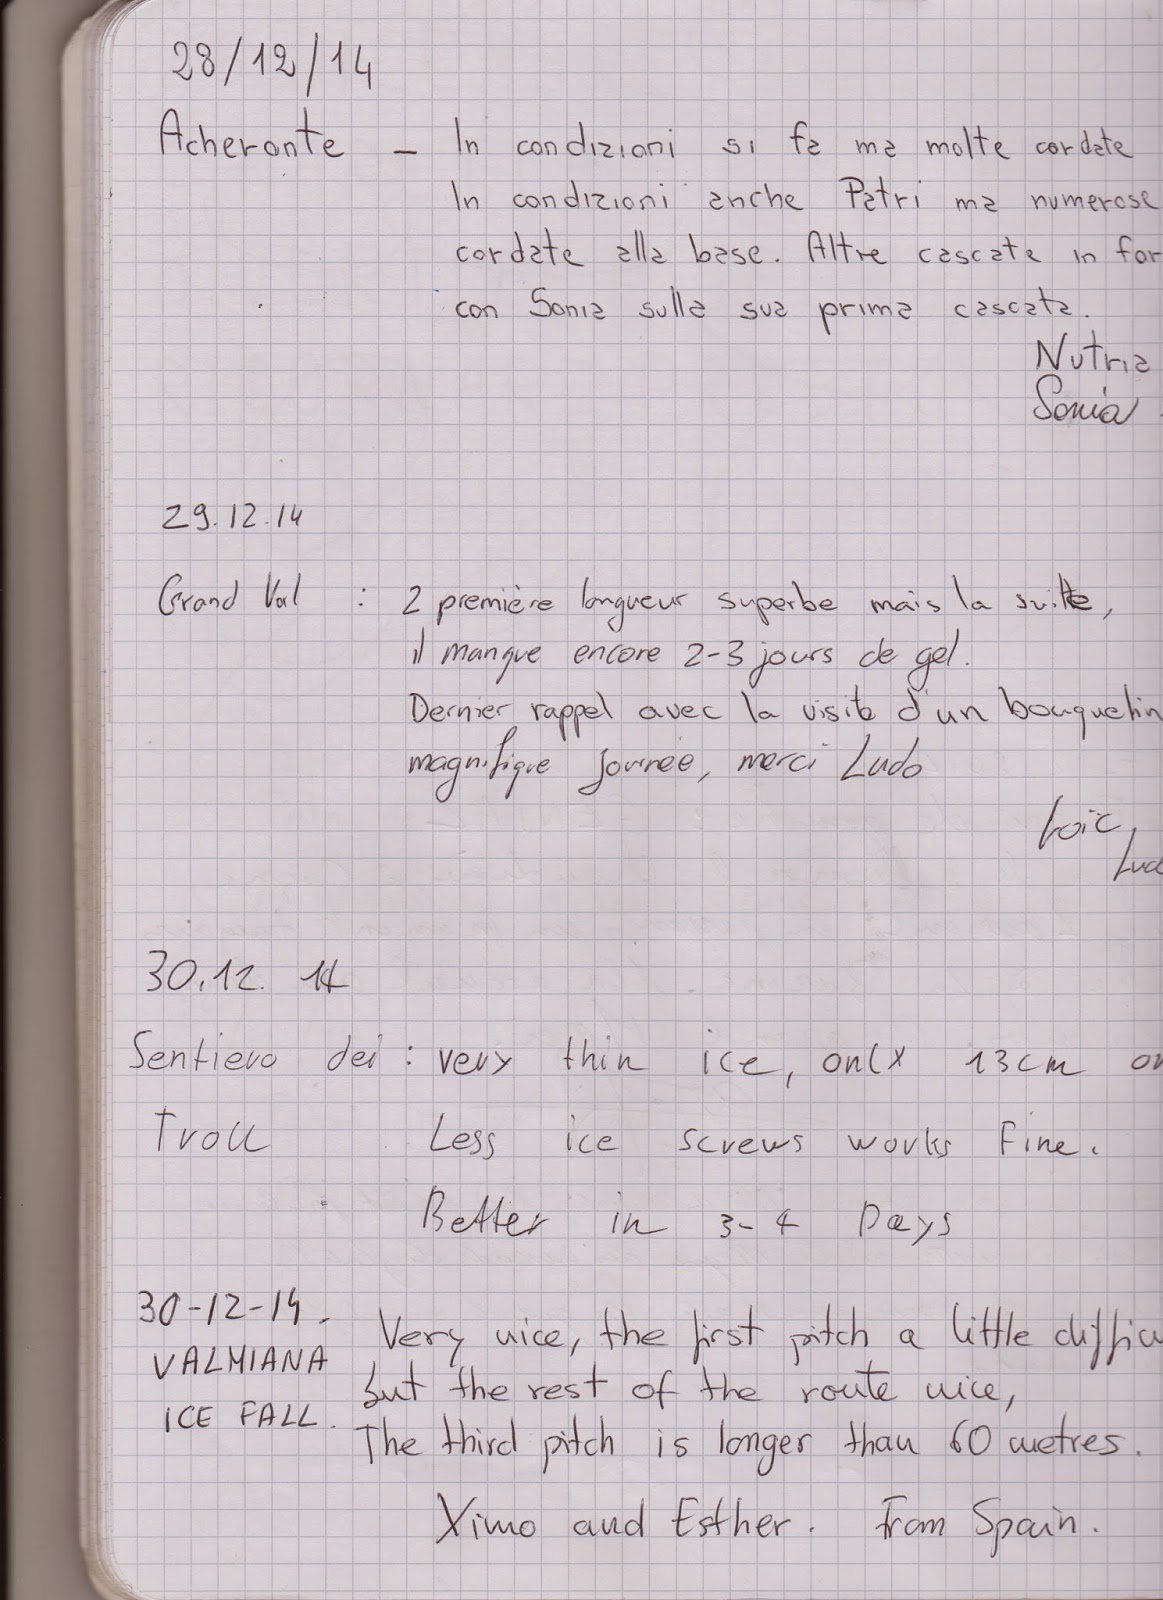 28/12/14
Acheronte - In condizioni si fa ma molte cordate
In condizioni anche Patri ma numerose
cordate alla base. Altre cascate in for
con Sonia sulla sua prima cascata.
Nutria
Sonia
29.12.14
Grand Val : 2 première longueur superbe mais la suite,
il manque encore 2-3 jours de gel.
Dernier rappel avec la visite d'un bouquetin
magnifique journée, merci Ludo
Loïc,
Lud
30.12. 14
Sentiero dei : very thin ice, only 13cm or
Troll Less ice screws works Fine.
Better in 3-4 Days
30-12-14. Very nice, the first pitch a little difficu
VALMIANA but the rest of the route nice,
ICE FALL. The third pitch is longer than 60 metres.
Ximo and Esther. From Spain.